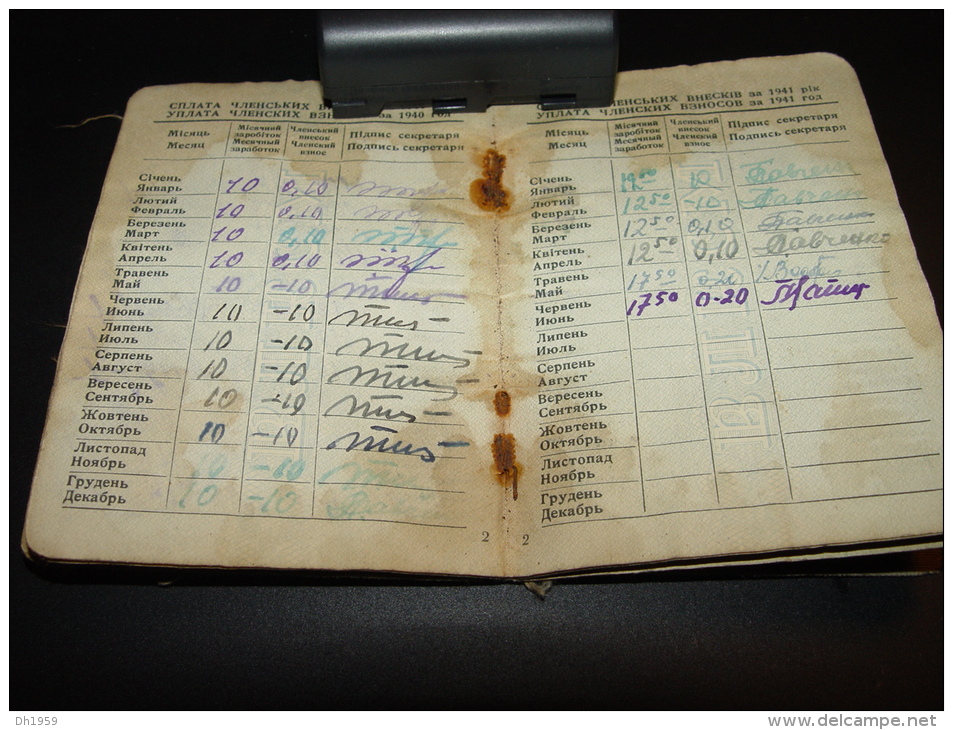 СПЛАТА ЧЛЕНСЬКИХ
УПЛАТА ЧЛЕНСКИХ за 1940 год
Місяць Місячний заробіток Членський внесок Підпис секретаря
Месяц Месячный заработок Членский взнос Подпись секретаря
Січень
Январь 10 0,10
Лютий
Февраль 10 0,10
Березень
Март 10 0,10
Квітень
Апрель 10 0,10
Травень
Май 10 -10
Червень
Июнь 10 -10
Липень
Июль 10 -10
Серпень
Август 10 -10
Вересень
Сентябрь 10 -10
Жовтень
Октябрь 10 -10
Листопад
Ноябрь 10 -10
Грудень
Декабрь 10 -10
2
ЧЛЕНСЬКИХ ВНЕСКІВ за 1941 рік
УПЛАТА ЧЛЕНСКИХ ВЗНОСОВ за 1941 год
Місяць Місячний заробіток Членський внесок Підпис секретаря
Месяц Месячный заработок Членский взнос Подпись секретаря
Січень
Январь 10
Лютий
Февраль 12 50 -10
Березень
Март 12 50 0,10
Квітень
Апрель 12 50 0,10
Травень
Май 17 50 0-20
Червень
Июнь 17 50 0-20
Липень
Июль
Серпень
Август
Вересень
Сентябрь
Жовтень
Октябрь
Листопад
Ноябрь
Грудень
Декабрь
2
Dh1959
www.delcampe.net